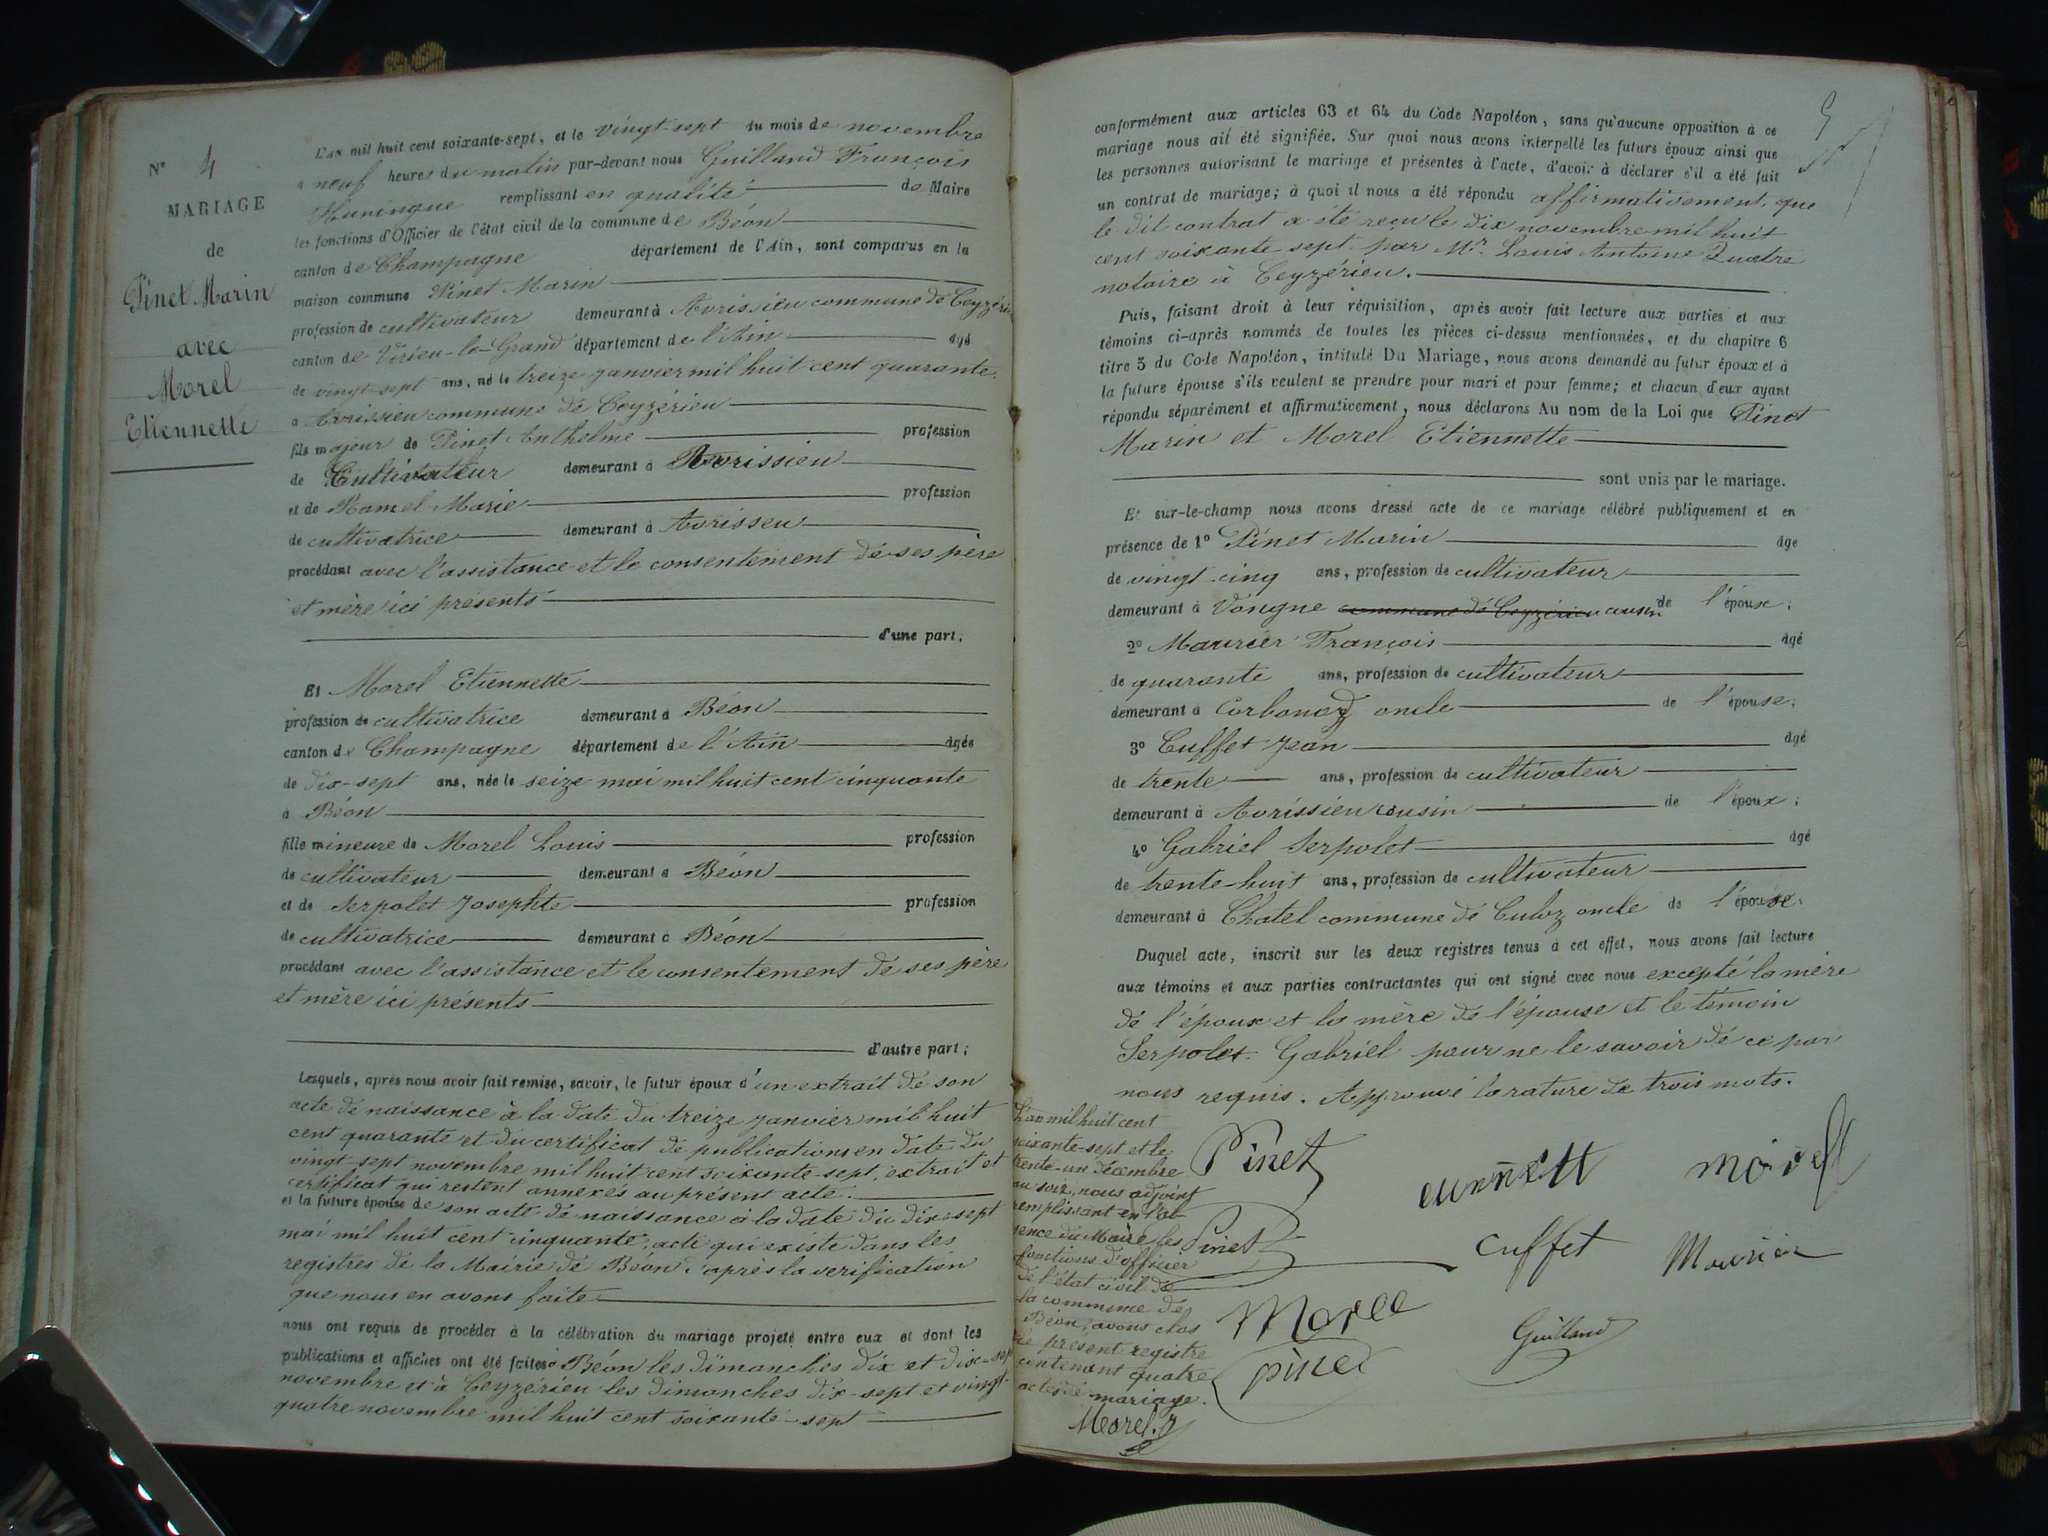 N° 4
MARIAGE
de
Pinet Marin
avec
Morel
Etiennette
L'an mil huit cent soixante-sept, et le vingt-sept du mois de novembre
à neuf heures du matin par-devant nous Guilland François
remplissant en qualité de Maire
les fonctions d'Officier de l'état civil de la commune de Béon
canton de Champagne département de l'Ain, sont comparus en la
maison commune Pinet Marin
profession de cultivateur demeurant à Avrissieu commune de Ceyzérieu
canton de Virieu-le-Grand département de l'Ain agé
de vingt-sept ans, né le treize janvier mil huit cent quarante
à Avrissieu commune de Ceyzérieu
fils majeur de Pinet Anthelme profession
de Cultivateur demeurant à Avrissieu
et de Hamel Marie profession
de cultivatrice demeurant à Avrissieu
procédant avec l'assistance et le consentement de ses père
et mère ici présents
d'une part;
Et Morel Etiennette
profession de cultivatrice demeurant à Béon
canton de Champagne département de l'Ain agée
de dix-sept ans, née le seize mai mil huit cent cinquante
à Béon
fille mineure de Morel Louis profession
de cultivateur demeurant à Béon
et de Serpolet Josephte profession
de cultivatrice demeurant à Béon
procédant avec l'assistance et le consentement de ses père
et mère ici présents
d'autre part;
Lesquels, après nous avoir fait remise, savoir, le futur époux d'un extrait de son
acte de naissance à la date du treize janvier mil huit
cent quarante et du certificat de publications en date du
vingt-sept novembre mil huit cent soixante-sept, extrait et
certificat qui restent annexés au présent acte.
et la future épouse de son acte de naissance à la date du dix-sept
mai mil huit cent cinquante, acte qui existe dans les
registres de la Mairie de Béon d'après la verification
que nous en avons faite
nous ont requis de procéder à la célébration du mariage projeté entre eux et dont les
publications et affiches ont été faites à Béon les dimanches dix et dix-sept
novembre et à Ceyzérieu les dimanches dix-sept et vingt-
quatre novembre mil huit cent soixante-sept
conformément aux articles 63 et 64 du Code Napoléon, sans qu'aucune opposition à ce
mariage nous ait été signifiée. Sur quoi nous avons interpellé les futurs époux ainsi que
les personnes autorisant le mariage et présentes à l'acte, d'avoir à déclarer s'il a été fait
un contrat de mariage; à quoi il nous a été répondu affirmativement, que
le dit contrat a été reçu le dix novembre mil huit
cent soixante sept par Mr. Louis Antoine Quatre
notaire à Ceyzérieu.
Puis, faisant droit à leur réquisition, après avoir fait lecture aux parties et aux
témoins ci-après nommés de toutes les pièces ci-dessus mentionnées, et du chapitre 6
titre 5 du Code Napoléon, intitulé Du Mariage, nous avons demandé au futur époux et à
la future épouse s'ils veulent se prendre pour mari et pour femme; et chacun d'eux ayant
répondu séparément et affirmativement, nous déclarons Au nom de la Loi que Pinet
Marin et Morel Etiennette
sont unis par le mariage.
Et sur-le-champ nous avons dressé acte de ce mariage célébré publiquement et en
présence de 1° Pinet Marin âge
de vingt-cinq ans, profession de cultivateur
demeurant à Vongne commune de Ceyzérieu cousin de l'épouse;
2° Maurier François agé
de quarante ans, profession de cultivateur
demeurant à Corbonod oncle de l'épouse;
3° Cuffet Jean agé
de trente ans, profession de cultivateur
demeurant à Avrissieu cousin de l'époux;
4° Gabriel Serpolet agé
de trente-huit ans, profession de cultivateur
demeurant à Chatel commune de Culoz oncle de l'épouse.
Duquel acte, inscrit sur les deux registres tenus à cet effet, nous avons fait lecture
aux témoins et aux parties contractantes qui ont signé avec nous excepté la mère
de l'époux et la mère de l'épouse et le témoin
Serpolet Gabriel pour ne le savoir de ce par
nous requis. Approuvé la rature de trois mots.
L'an mil huit cent
soixante-sept et le
trente-un décembre
au soir, nous adjoint
remplissant en l'ab-
sence du Maire les
fonctions d'officier
de l'état civil de
la commune de
Béon, avons clos
le présent registre
contenant quatre
actes de mariage.
Morel. J
Pinet
morel
Pinet
Cuffet
Maurier
Morel
Guilland
pinet